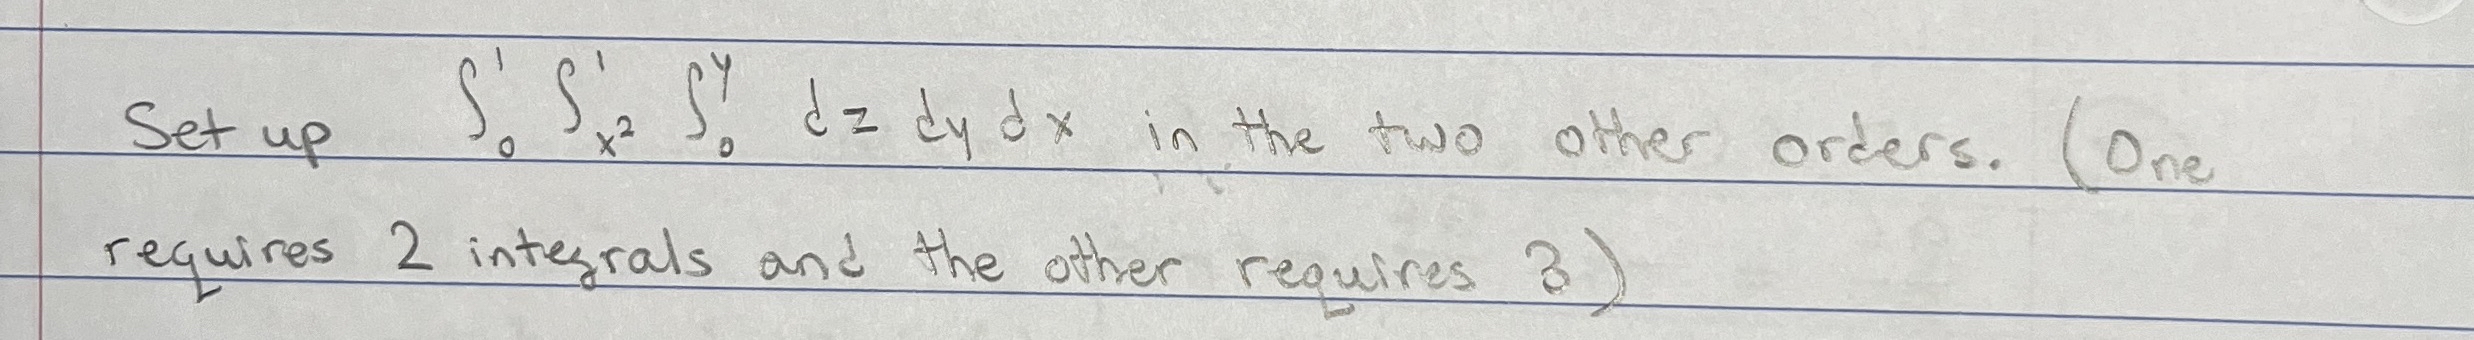 Set up ∫₀¹ ∫ₓ₂¹ ∫₀ʸ dz dy dx in the two other orders. (One
requires 2 integrals and the other requires 3)